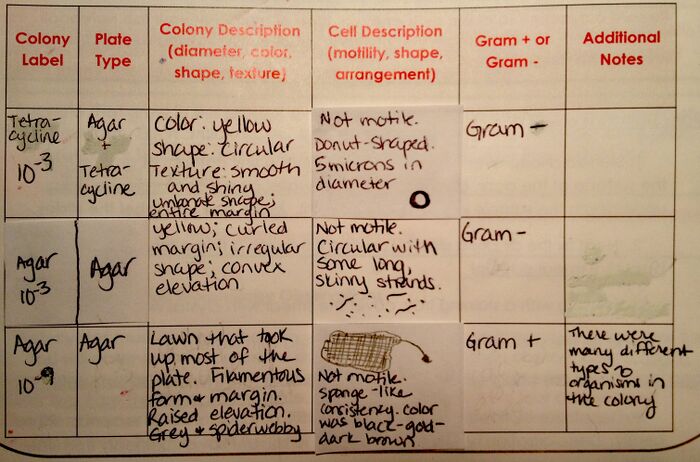 Colony Label
Plate Type
Colony Description (diameter, color, shape, texture)
Cell Description (motility, shape, arrangement)
Gram + or Gram -
Additional Notes
Tetra-
cycline
10-3
Agar
+
Tetra-
cycline
Color: yellow
shape: circular
Texture: smooth
and shiny
umbonate shape;
entire margin
Not motile.
Donut-shaped.
5 microns in
diameter
Gram -
Agar
10-3
Agar
yellow; curled
margin; irregular
shape; convex
elevation
Not motile.
Circular with
some long,
skinny strands.
Gram -
Agar
10-9
Agar
Lawn that took
up most of the
plate. Filamentous
form + margin.
Raised elevation.
Grey + spiderwebby
Not motile.
sponge-like
consistency. color
was black-gold-
dark brown
Gram +
There were
many different
types
organisms in
the colony